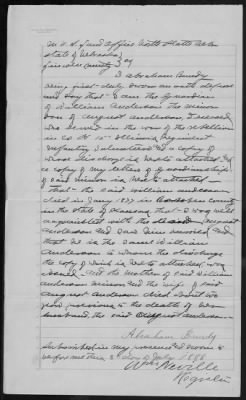 In U.S. Land Office North Platte Neb
State of Nebraska
Lincoln County } ss
I Abraham Bundy
being first duly sworn on oath depose
and say that I am the Guardian
of William Anderson the minor
son of August Anderson, Deceased
who served in the war of the rebellion
in Co H Illinois Regiment
Infantry Volunteers a copy of
whose discharge is hereto attached and
a copy of my letters of Guardianship
of said minor is hereto attached
that the said William Anderson
died in January 1877 in County
in the State of that I was well
acquainted with the said August
Anderson and said minor and
that he is the same William
Anderson to whom the discharge
the copy of which is hereto attached was
issued and the mother of said William
Anderson minor and the wife of said
August Anderson died about two
years previous to the death of her
husband the said August Anderson
Abraham Bundy
Subscribed in my presence and sworn to
before me this day of July 1886
Wm Neville
Register